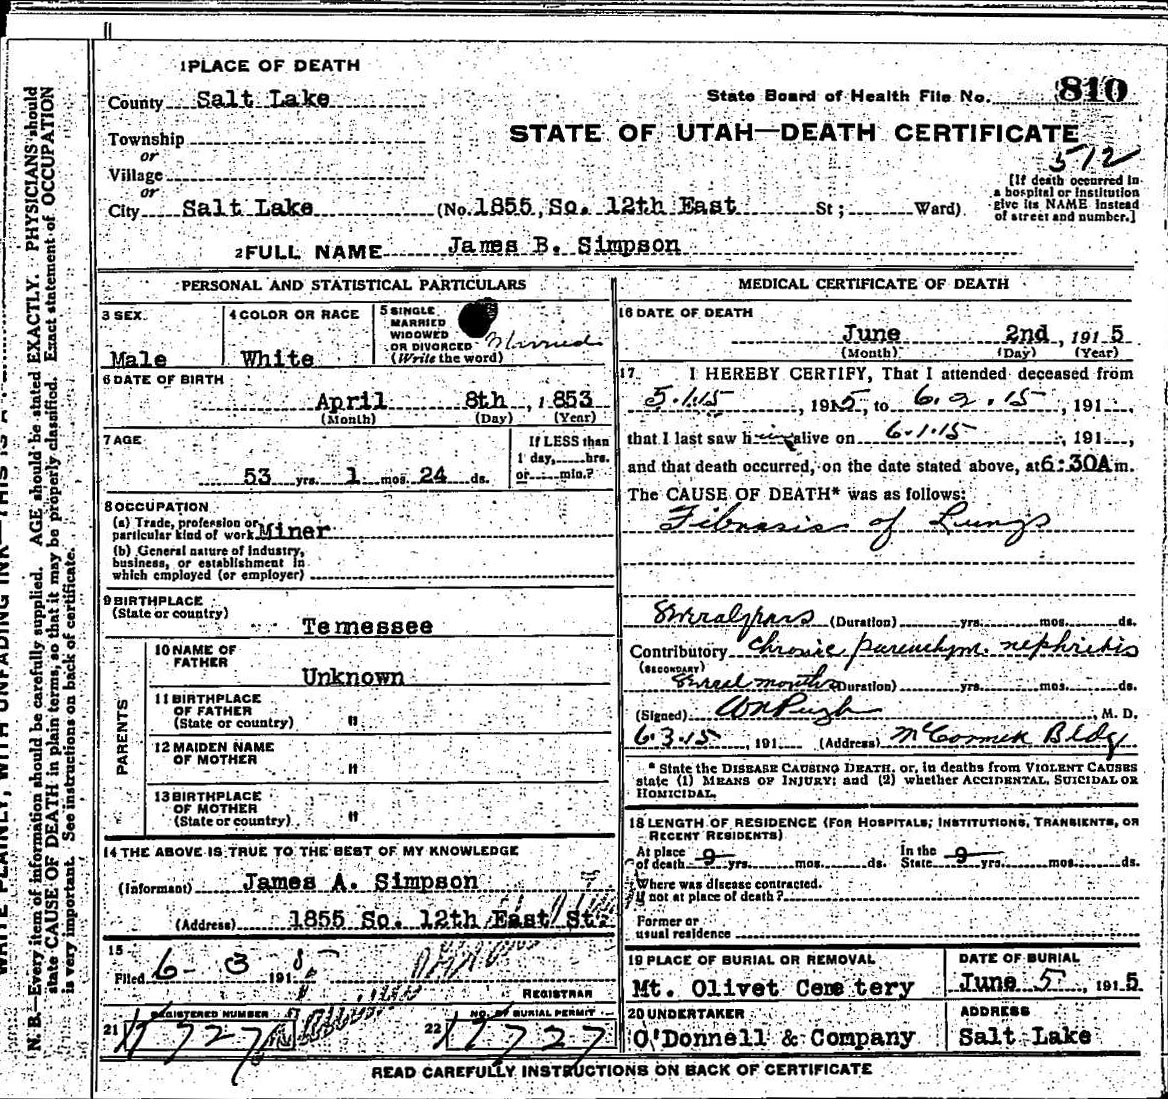 1 PLACE OF DEATH
County Salt Lake
State Board of Health File No. 810
Township
or
STATE OF UTAH—DEATH CERTIFICATE
512
Village
or
City Salt Lake (No. 1855, So. 12th East St; Ward)
[If death occurred in
a hospital or institution
give its NAME instead
of street and number.]
2 FULL NAME James B. Simpson
PERSONAL AND STATISTICAL PARTICULARS
3 SEX
Male
4 COLOR OR RACE
White
5 SINGLE
MARRIED
WIDOWED
OR DIVORCED
(Write the word)
Married
6 DATE OF BIRTH
April 8th, 1853
(Month) (Day) (Year)
7 AGE
53 yrs. 1 mos. 24 ds.
If LESS than
1 day, hrs.
or min.?
8 OCCUPATION
(a) Trade, profession or
particular kind of work Miner
(b) General nature of industry,
business, or establishment in
which employed (or employer)
9 BIRTHPLACE
(State or country)
Temessee
PARENTS
10 NAME OF
FATHER
Unknown
11 BIRTHPLACE
OF FATHER
(State or country) "
12 MAIDEN NAME
OF MOTHER "
13 BIRTHPLACE
OF MOTHER
(State or country) "
14 THE ABOVE IS TRUE TO THE BEST OF MY KNOWLEDGE
(Informant) James A. Simpson
(Address) 1855 So. 12th East St.
15
Filed 6-3 191
REGISTRAR
REGISTERED NUMBER
21 1727
NO. OF BURIAL PERMIT
22 1727
MEDICAL CERTIFICATE OF DEATH
16 DATE OF DEATH
June 2nd, 1915
(Month) (Day) (Year)
17 I HEREBY CERTIFY, That I attended deceased from
5.1.15, 1915, to 6.2.15, 191,
that I last saw him alive on 6.1.15, 191,
and that death occurred, on the date stated above, at 6:30A m.
The CAUSE OF DEATH* was as follows:
Fibrosis of Lungs
Several years (Duration) yrs. mos. ds.
Contributory Chronic parenchym. nephritis
(SECONDARY)
Several months (Duration) yrs. mos. ds.
(Signed) Pugh, M. D.
6.3.15, 191 (Address) McCormick Bldg
* State the DISEASE CAUSING DEATH, or, in deaths from VIOLENT CAUSES
state (1) MEANS OF INJURY; and (2) whether ACCIDENTAL, SUICIDAL OR
HOMICIDAL.
18 LENGTH OF RESIDENCE (FOR HOSPITALS, INSTITUTIONS, TRANSIENTS, OR
RECENT RESIDENTS)
At place
of death 9 yrs. mos. ds.
In the
State 9 yrs. mos. ds.
Where was disease contracted.
If not at place of death?
Former or
usual residence
19 PLACE OF BURIAL OR REMOVAL
Mt. Olivet Cemetery
DATE OF BURIAL
June 5, 1915
20 UNDERTAKER
O'Donnell & Company
ADDRESS
Salt Lake
READ CAREFULLY INSTRUCTIONS ON BACK OF CERTIFICATE
N. B.—Every item of information should be carefully supplied. AGE should be stated EXACTLY. PHYSICIANS should
state CAUSE OF DEATH in plain terms, so that it may be properly classified. Exact statement of OCCUPATION
is very important. See instructions on back of certificate.